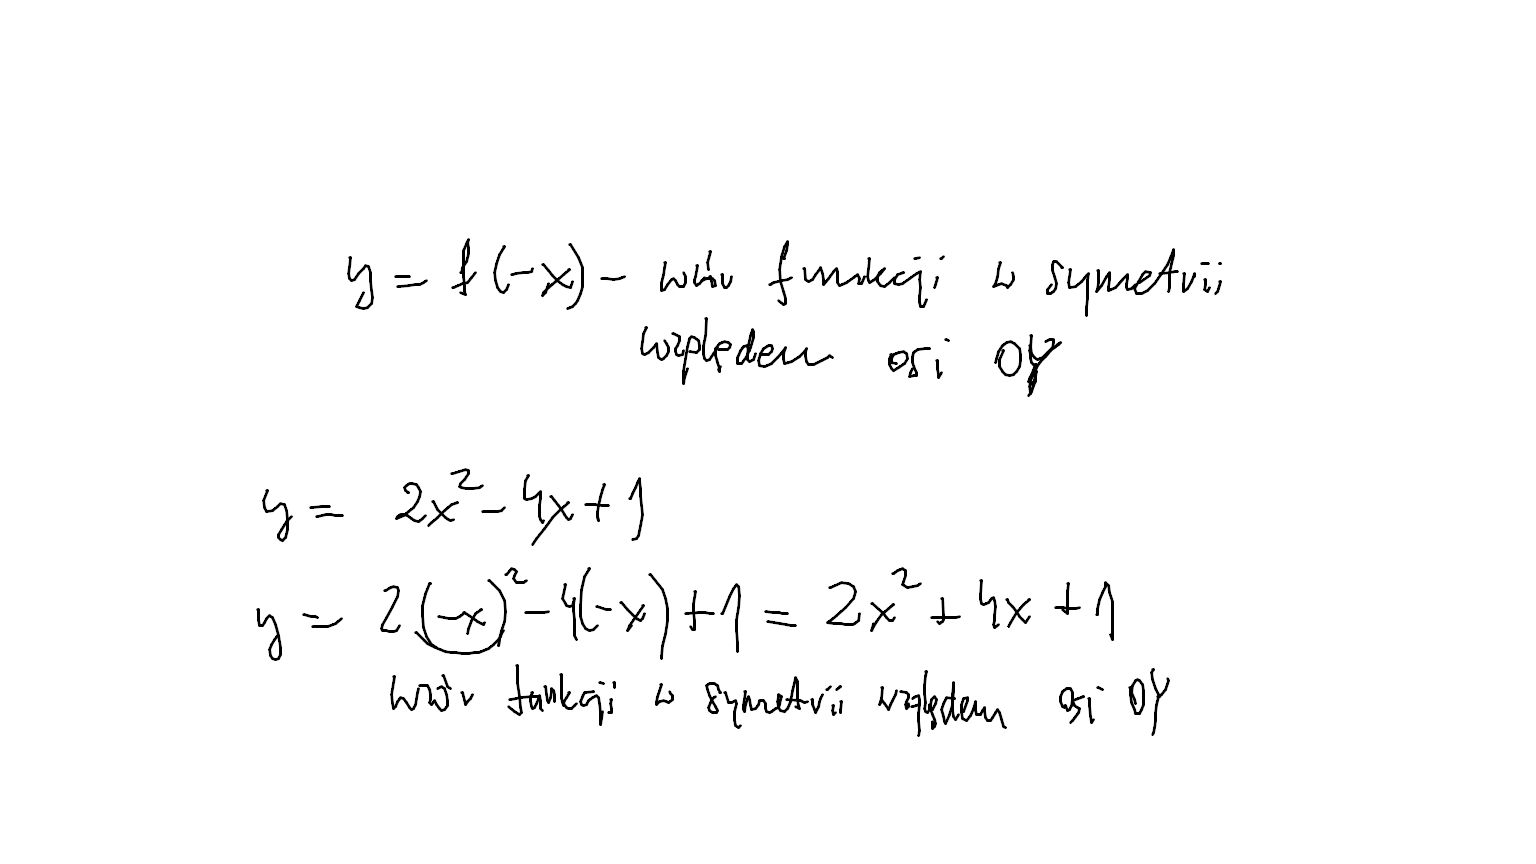 y = f(-x) - wzór funkcji w symetrii
względem osi OY
y = 2x² - 4x + 1
y = 2(-x)² - 4(-x) + 1 = 2x² + 4x + 1
wzór funkcji w symetrii względem osi OY